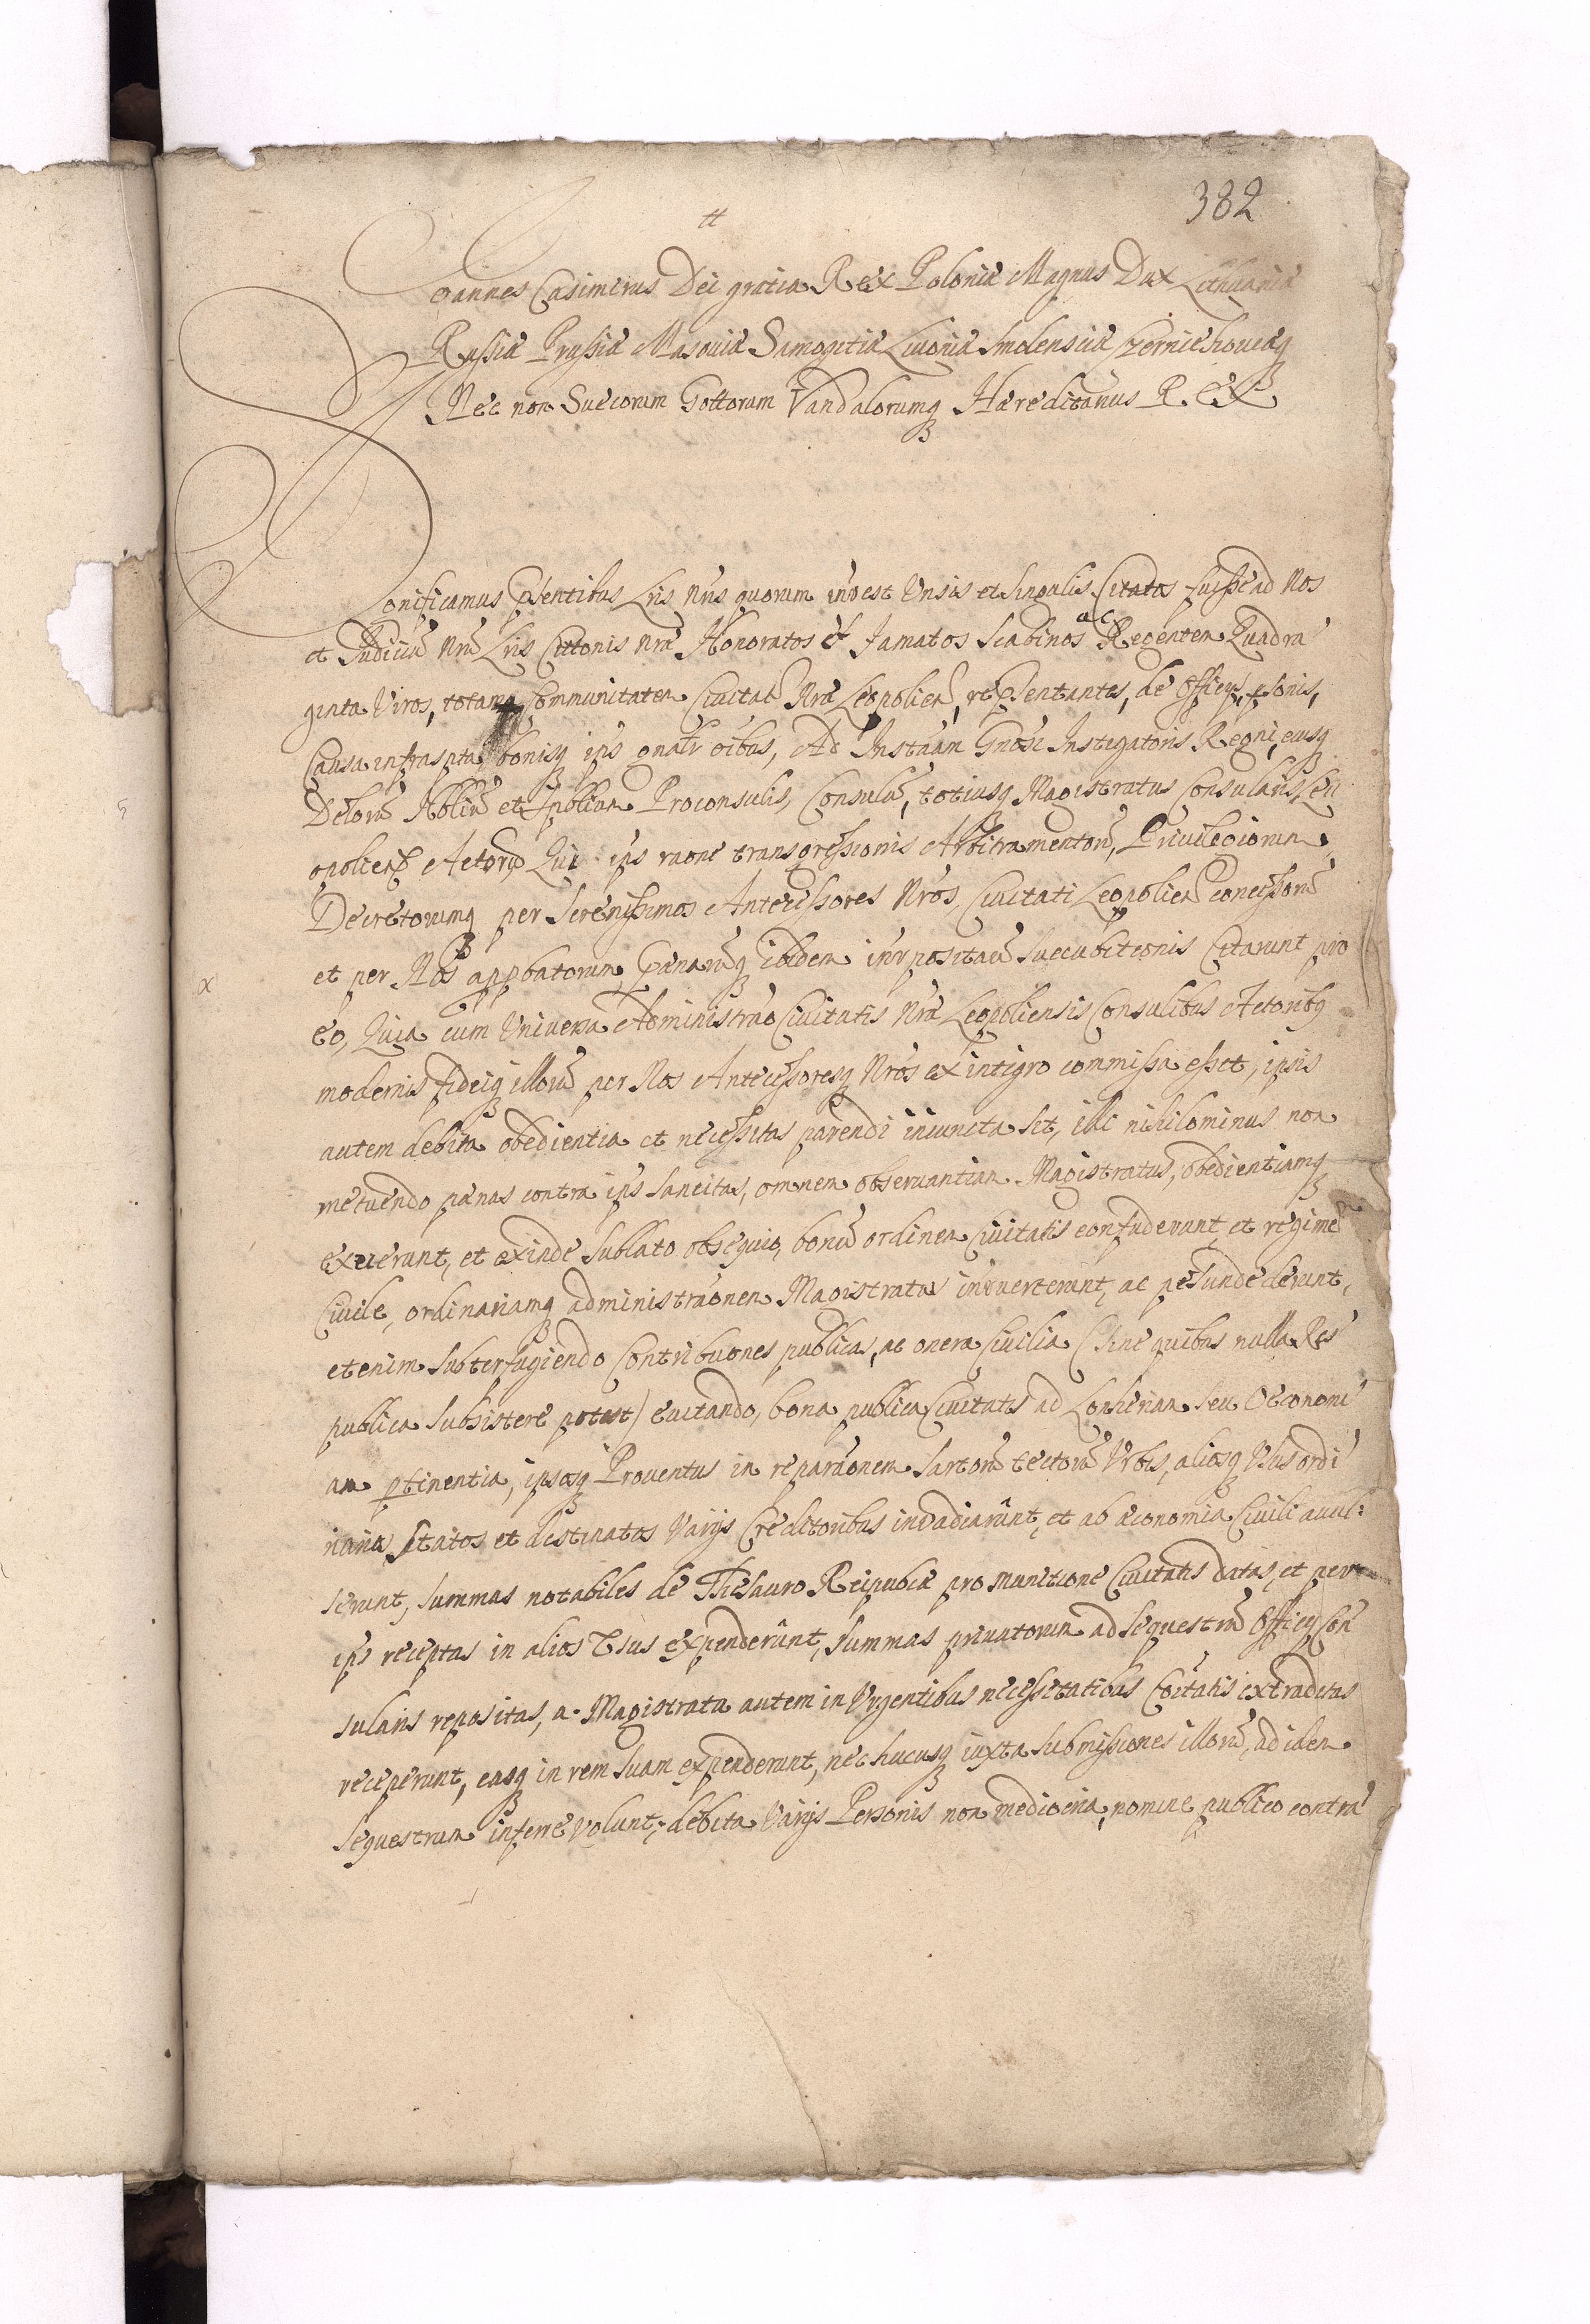 382
Joannes Casimirus Dei gratia Rex Poloniæ Magnus Dux Lithuaniæ
Russiæ Prussiæ Masouiæ Samogitiæ Liuoniæ Smolensciæ Czerniechoviæq
Nec non Suecorum Gottorum Vandalorumq Hæreditarius REX
Significamus pñtentibus Lris Nris quorum inrest Vnsis et singulis Citatos fuisse ad Nos
et Judiciũ Nrũ Lris Cittonis Nræ Honoratos et famatos Scabinos ac Regentem Quadra
ginta Viros, totamq Communitatem Ciuitat Nræ Leopolien, repsentantes, de Officijs, psonis,
Causa infraspta bonisq ips gnalr oibus, Ad Instãm Gnosi Instigatoris Regni, eiusq
Delorũ Nobliũ et Spbliũ Proconsulis, Consulũ, totiusq Magistratus Consularis, Le
opolien Actorũ Qui ips raone transgressionis Arbitramentorũ, Priuilegiorum
Decretorumq per Serenissimos Antecessores Nros, Ciuitati Leopolien concessorũ
et per Nos appbatorum, Pænarũq ibidem inrpositarũ succubitionis Citarunt pro
eo, Quia cum Vniuersa Administrao Ciuitatis Nræ Leopoliensis Consulibus Actoribq
modernis fideiq illorũ per Nos Antecessoresq Nros ex integro commissa esset, ipsis
autem debita obedientia et necessitas parendi iniuncta sit, illi nihilominus non
metuendo pænas contra ips sancitas, omnem obseruantiam Magistratus, obedientiamq
exuerunt, et exinde sublato obsequio, bonũ ordinem Ciuitatis confuderunt, et regimẽ
Ciuile, ordinariamq administraonem Magistratus inuerterunt, ac pesundederunt,
etenim subterfugiendo Contribuones publicas, ac onera Ciuilia (sine quibus nulla Res
publica subsistere potest) euitando, bona publica Ciuitatis ad Lonheriam seu Oeconomi
am ptinentia, ipsosq Prouentus in reparaonem sartorũ tectorũ Vrbis, aliosq Vsus ordi
narios statos et destinatos Varijs Creditoribus inuadiarunt, et ab æconomia Ciuili auul:
serunt, summas notabiles de Thesauro Reipublicæ pro munitione Ciuitatis datas, et per
ips receptas in alios Vsus expenderunt, summas priuatorum ad sequestrũ Officij Con
sularis repositas, a Magistratu autem in Vrgentibus necessitatibus Citatis extraditas
receperunt, easq in rem suam expenderunt, nec hucusq iuxta submissiones illorũ, ad idem
sequestrum inferre volunt, debita Varijs Personis non mediocria, nomine publico contra